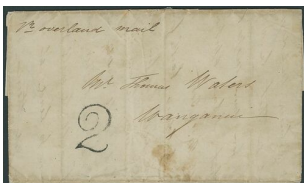 Pr overland mail
Mr Thomas Waters
Wanganui
2